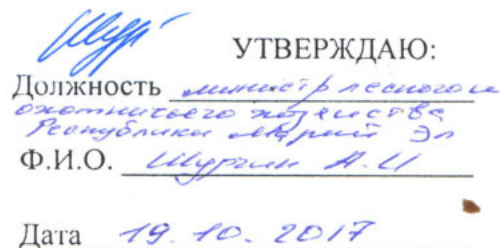 УТВЕРЖДАЮ:
Должность министр лесного и
охотничьего хозяйства
Республики Марий Эл
Ф.И.О. Шургин А.И
Дата 19.10.2017